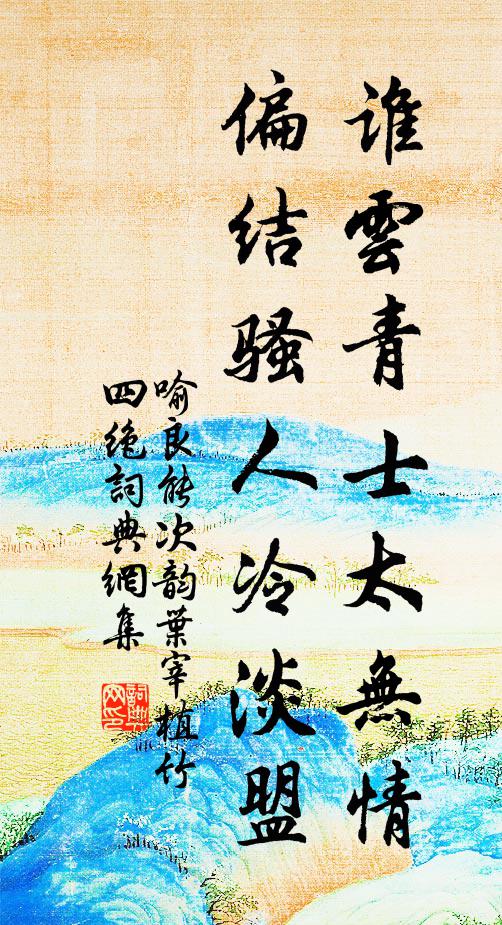 谁雲青士太無情
偏结骚人冷淡盟
喻良能次韵葉宰植竹
四绝詞典網集
詞典网印